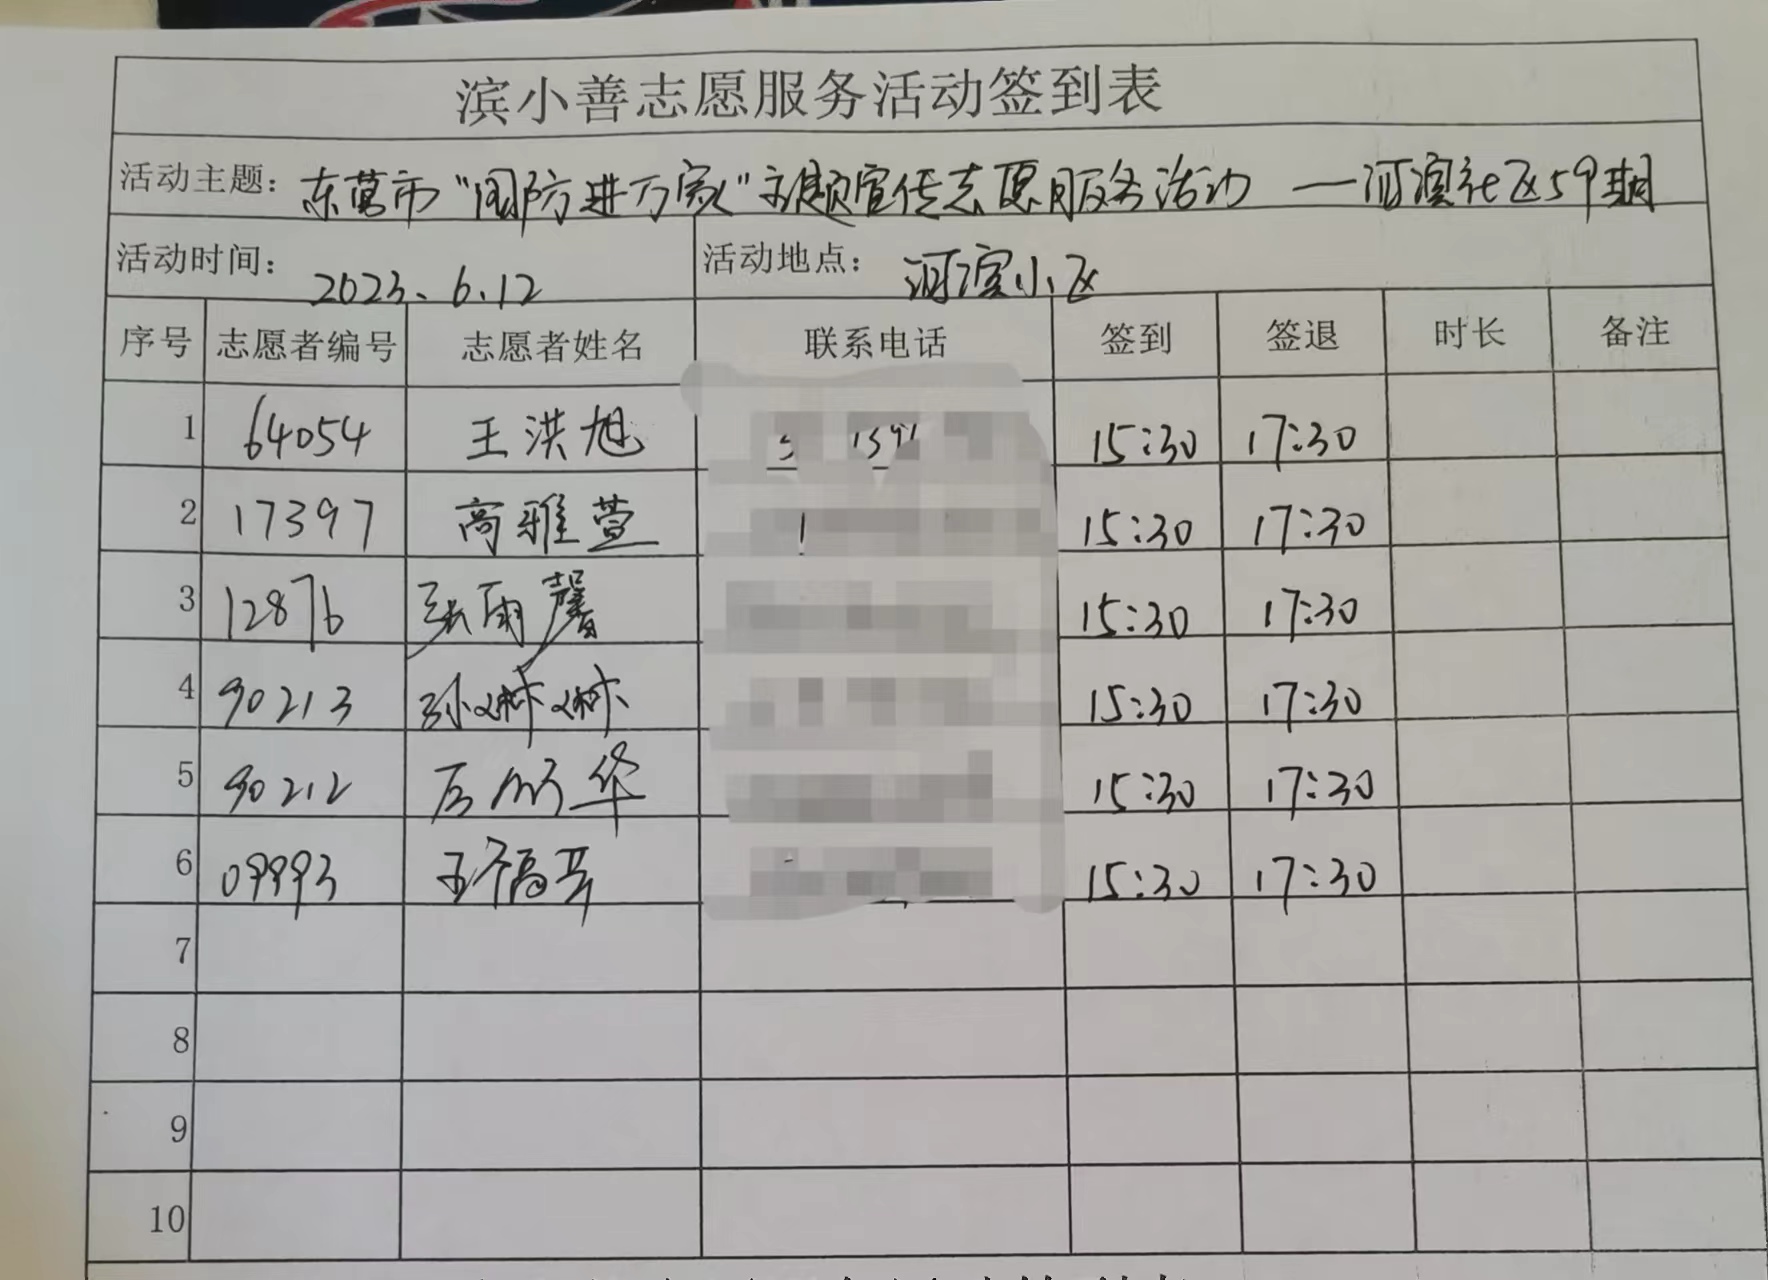 滨小善志愿服务活动签到表
活动主题：东营市“国防进万家”主题宣传志愿服务活动 —河滨社区59期
活动时间：2023.6.12 活动地点：河滨小区
序号 志愿者编号 志愿者姓名 联系电话 签到 签退 时长 备注
1 64054 王洪旭 15:30 17:30
2 17397 高雅萱 15:30 17:30
3 12876 张雨馨 15:30 17:30
4 90213 孙琳琳 15:30 17:30
5 90212 华 15:30 17:30
6 09993 15:30 17:30
7
8
9
10